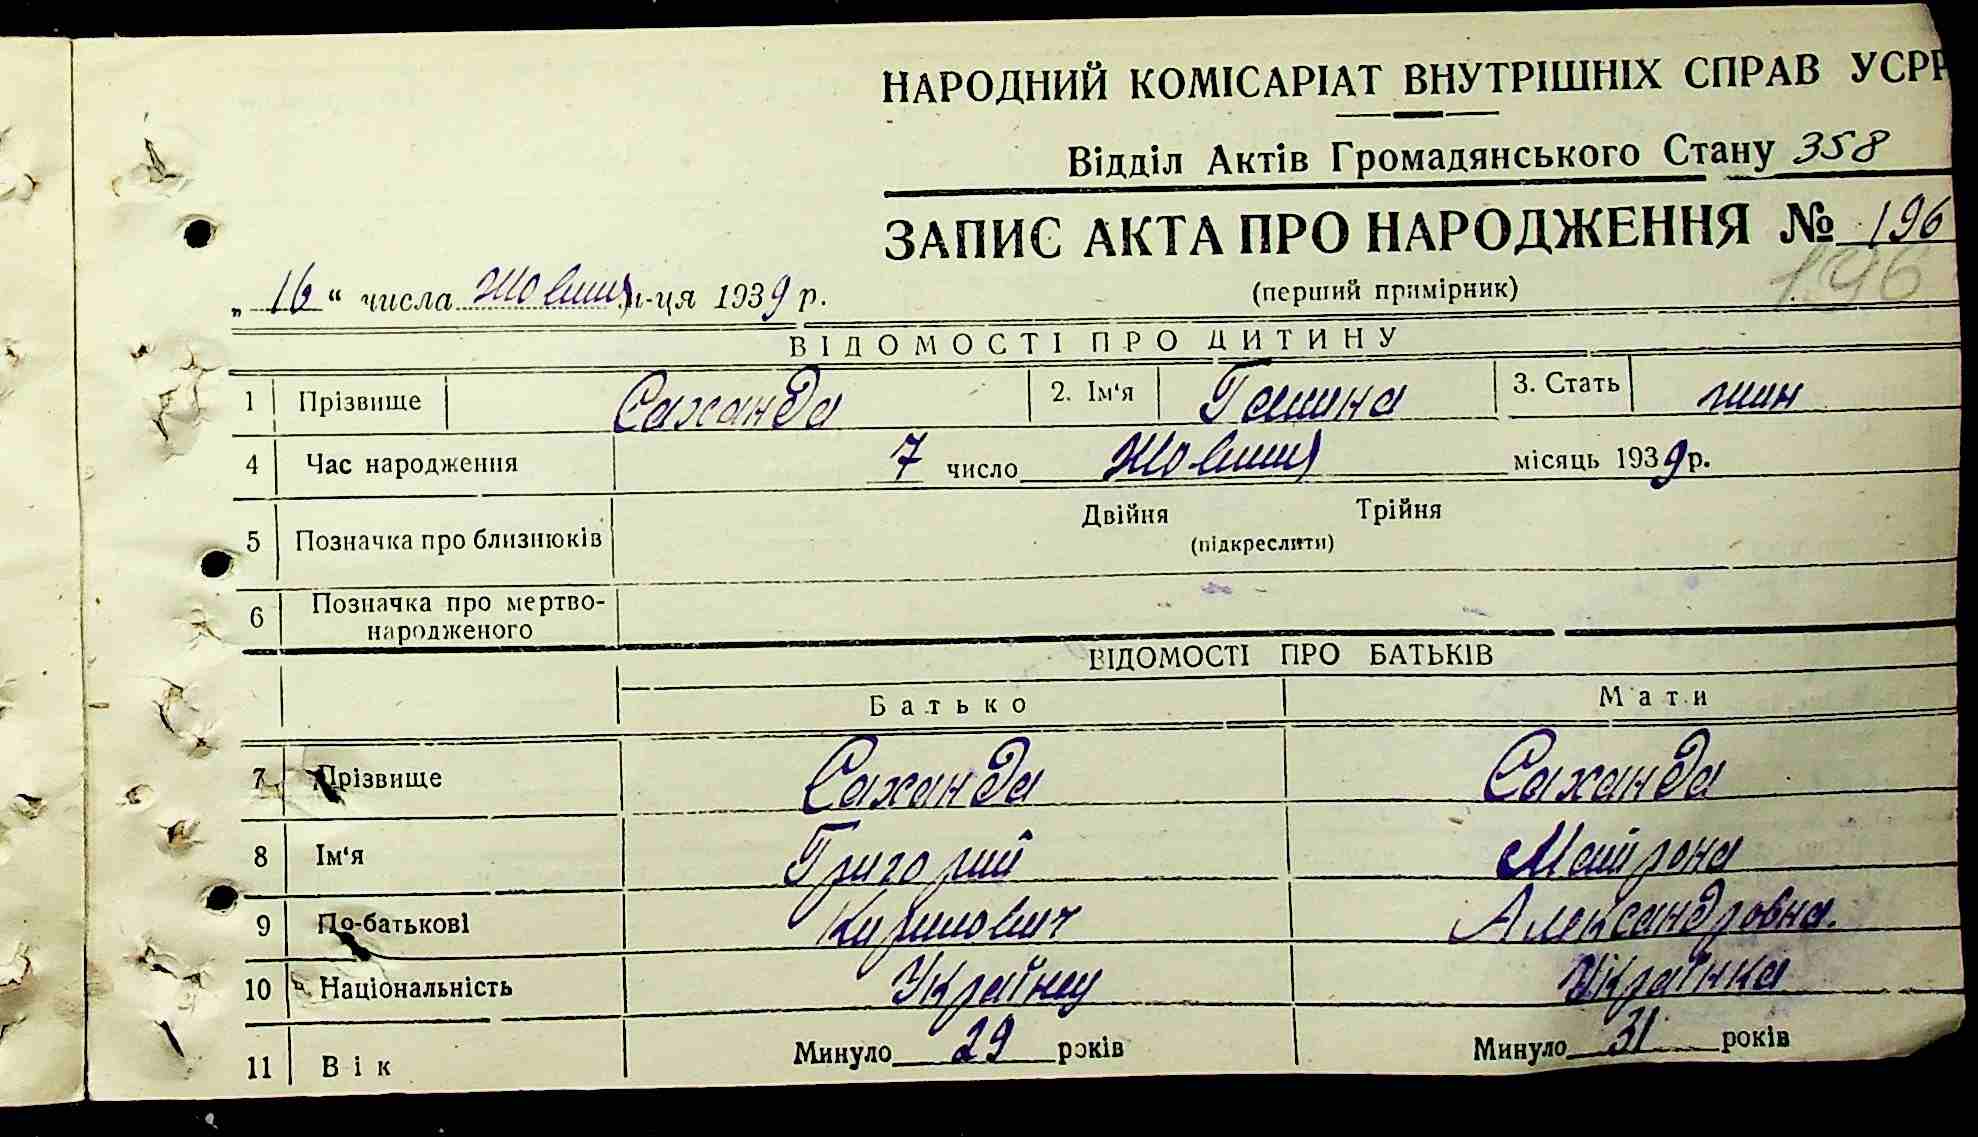 НАРОДНИЙ КОМІСАРІАТ ВНУТРІШНІХ СПРАВ УСРР
Відділ Актів Громадянського Стану 358
ЗАПИС АКТА ПРО НАРОДЖЕННЯ № 196
196
„16“ числа Жовтня м-ця 1939 р.
(перший примірник)
ВІДОМОСТІ ПРО ДИТИНУ
1 Прізвище Саханда 2. Ім‘я Галина 3. Стать жин
4 Час народження 7 число Жовтня місяць 1939 р.
5 Позначка про близнюків Двійня Трійня
(підкреслити)
6 Позначка про мертво-
народженого
ВІДОМОСТІ ПРО БАТЬКІВ
Батько Мати
7 Прізвище Саханда Саханда
8 Ім‘я Григорий
9 По-батькові Кирилович Александровна.
10 Національність Українец Українка
11 Вік Минуло 29 років Минуло 31 років